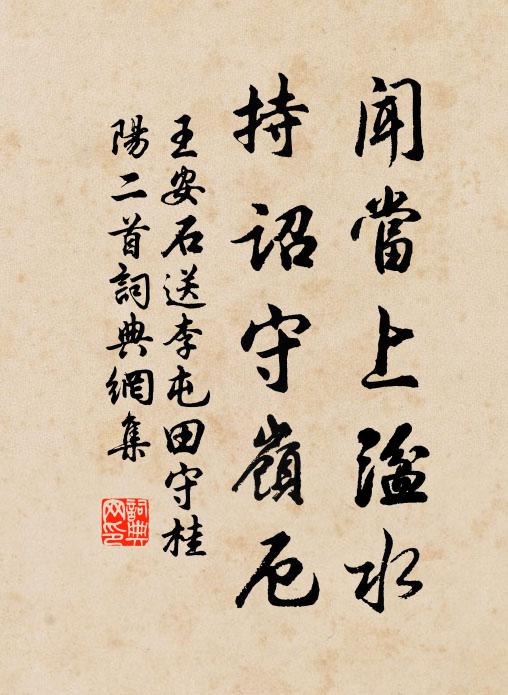 聞當上溢水
持詔守嶺厄
王安石送李屯田守桂
陽二首詞典網集
詞典
网印